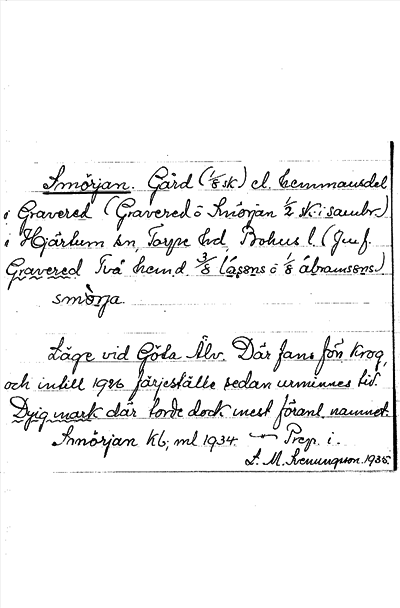 Smörjan. Gård (1/8 sk) el. hemmansdel
i Gravered (Gravered o Smörjan 1/2 sk. i sambr.)
i Hjärtum sn, Torpe hd, Bohus l. (Jmf.
Gravered Två hem d. 3/8 o 1/8
smòrja
Läge vid Göta Älv. Där fans förr krog,
och intill 1926 färjeställe sedan urminnes tid.
Dyig mark där torde dock mest föranl. namnet.
Smörjan kb, ml 1934. — Prep. i.
L. M. Svenungsson. 1935.